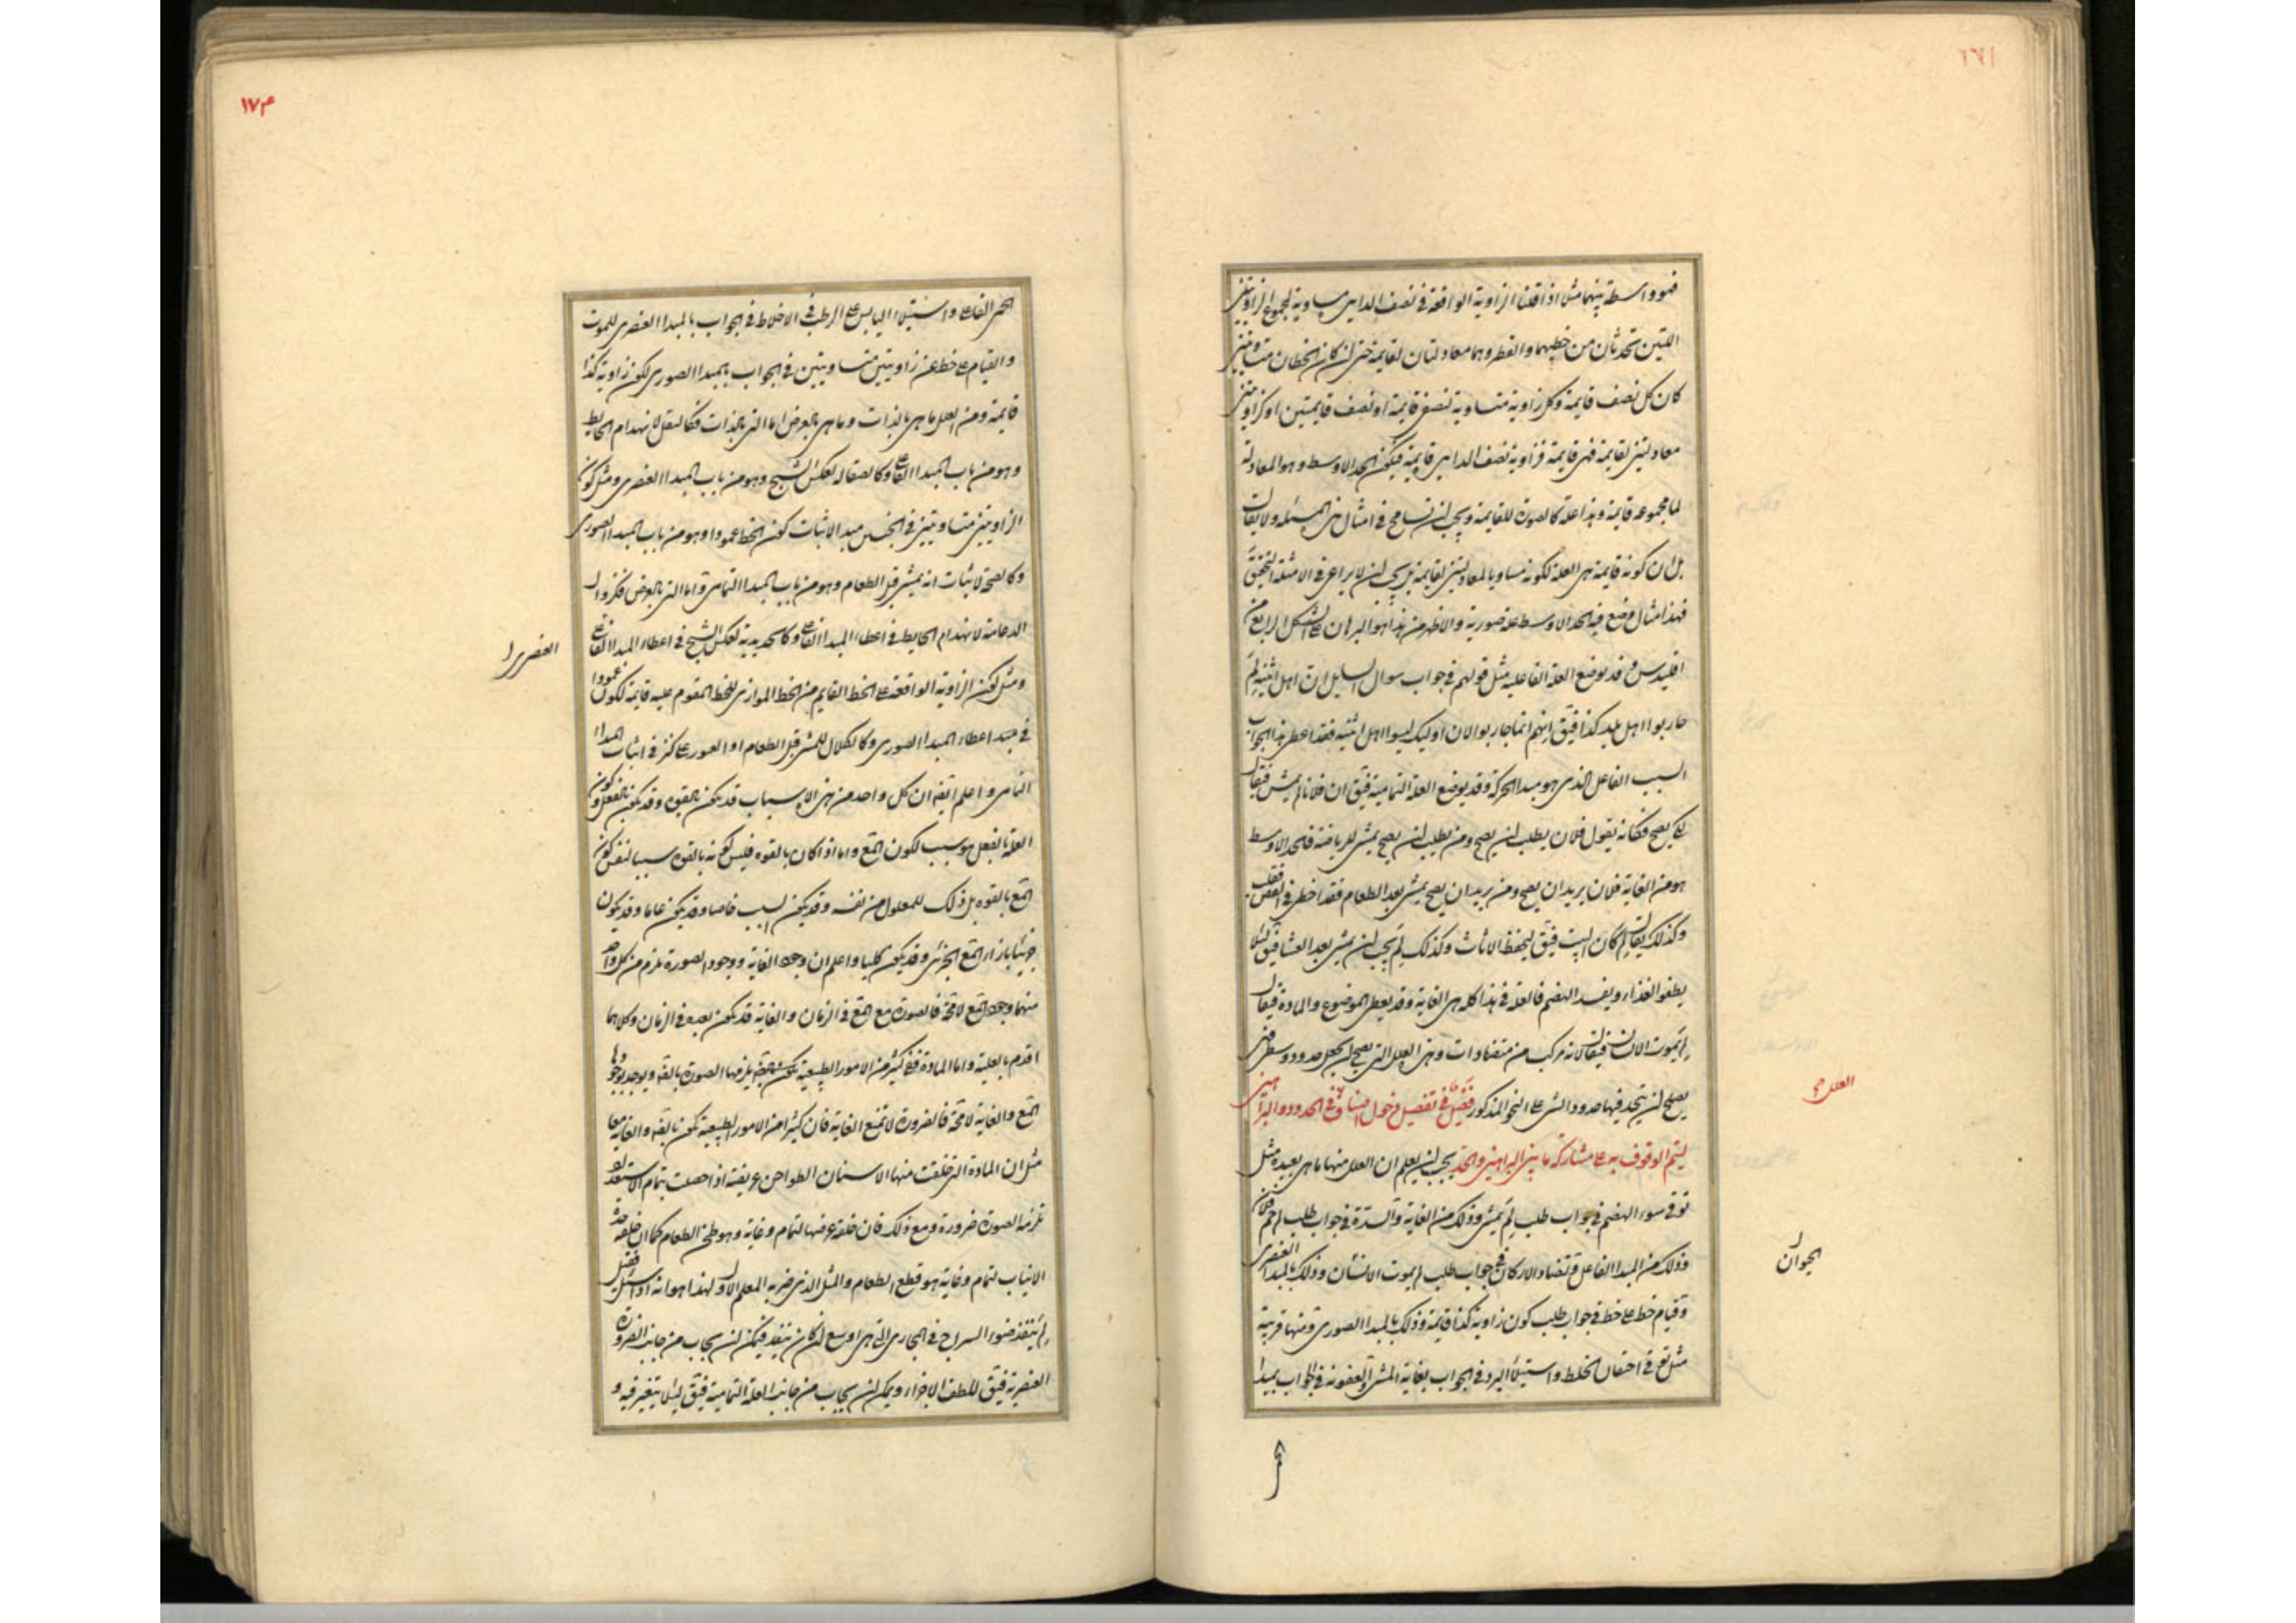 فهو واسطة بينهما مثلا اذا قلنا الزاوية الواقعة في نصف الدايرة مساوية لمجموع الزاويتين
اللتين تحدثان من خطيهما والقطر وهما معادلتان لقايمة حتى لن كان الخطان متساويتين
كان كل نصف قايمة وكل زاوية متساوية لنصفي قايمة او نصف قايمتين او كزاويتين
معادلتين لقايمة فهي قايمة فزاوية نصف الدايرة قايمة فيكون الحد الاوسط وهو المعادلة
لما مجموعه قايمة وهذا علة كالصورة للقايمة ويجب لن تسامح في امثال هذه المسئلة ولا يقال
بل ان كونه قايمة هي العلة لكونه مساويا لمعادلتين لقايمة بل يجب لن لا يراعى في الامثلة التحقيق
فهذا مثال وضع فيه الحد الاوسط علة صورية والاظهر من هذا هو البرهان على الشكل الرابع من
اقليدس وقد يوضع العلة الفاعلية مثل قولهم في جواب سوال السايل ان اهل اثنية لم
حاربوا اهل بلد كذا فيق انهم انما حاربوا لان اوليك ليسوا اهل اثنية فقد اعطى هذا الجواب
السبب الفاعل الذي هو مبدا الحركة وقد يوضع العلة التمامية فيق ان فلانا لم يمشى فيقال
لكي يصح فكانه يقول فلان يطلب لن يصح ومن يطلب لن يصح يمشى للرياضة فالحد الاوسط
هو من الغاية فلان يريد ان يصح ومن يريد ان يصح يمشى بعد الطعام فقد اخطى في
وكذلك يقال لم كان البيت فيق ليحفظ الاثاث وكذلك لم يجب لن يمشى بعد العشا فيق ليلا
يطفو الغذاء ويفسد الهضم فالعلة في هذا كله هي الغاية وقد يعطى الموضوع والمادة فيقال
لم يموت الانسان فيقال لانه مركب من متضادات وهذه العلل التي يصح لن يجعل حدود وسطى فهي
يصلح لن يتخذ فيها حدود الشى على النحو المذكور فصل في تفصيل دخول اصناف في الحدود والبراهين
ليتم الوقوف به على مشاركة ما بين البراهين والحد يجب لن يعلم ان العلل منها ما هي بعيدة مثل
توقي سوء الهضم في جواب طلب لم يمشى وذلك من الغاية والسدة في جواب طلب لم حم فلان
وذلك من المبدا الفاعل وتضاد الاركان في جواب طلب لم يموت الانسان وذلك بالمبدا العنصرى
وقيام خط على خط في جواب طلب كون زاوية كذا قايمة وذلك بالمبدا الصورى ومنها قريبة
مثل توقي احتقان الخلط واستيلاء البرد في الجواب بغاية المشى والعفونة في الجواب بمبدا
العلل صح
الحيوان
١٧٤
الحمى الفاعلى واستيلاء اليابس على الرطب في الاخلاط في الجواب بالمبدا العنصرى للموت
والقيام على خط عن زاويتين متساويتين في الجواب بالمبدا الصورى لكون زاوية كذا
قايمة ومن العلل ما هي بالذات وما هي بالعرض اما التي بالذات فكالثقل لانهدام الحايط
وهو من باب المبدا الفاعلى وكالصقالة لعكس الشبح وهو من باب المبدا العنصرى ومثل كون
الزاويتين متساويتين في الجنس مبدا لاثبات كون الخط عمودا وهو من باب المبدا الصورى
وكالصحة لاثبات انه يمشى قبل الطعام وهو من باب المبدا التمامى واما التي بالعرض فكزوال
الدعامة لانهدام الحايط في اعطاء المبدا الفاعلى وكالحديدية لعكس الشبح في اعطاء المبدا الفاعلى
ومثل لكون الزاوية الواقعة على الخط القايم من الخط الموازى للخط المقوم عليه قايمة لكون عمودا
في مبدا اعطاء المبدا الصورى وكالكلال للمشى قبل الطعام او العبور على كنز في اثبات المبداء
التمامى واعلم ايضا ان كل واحد من هذه الاسباب قد يكون بالقوة وقد يكون بالفعل وكون
العلة بالفعل هو سبب لكون المع واما اذا كان بالقوة فليس كونه بالقوة سببا لنفس كون
المع بالقوة بل ذلك للمعلول من نفسه وقد يكون السبب خاصا وقد يكون عاما وقد يكون
جزئيا بازاء المع الجزئى وقد يكون كليا واعلم ان وجود الغاية ووجود الصورة يلزم من كل واحد
منهما وجود المع لامحة فالصورة مع المع في الزمان والغاية قد يكون بعده في الزمان وكلاهما
اقدم بالعلية واما المادة ففي كثير من الامور الطبيعية يلزمها الصورة بالضه ويوجد بوجودها
المع والغاية لامحة فالضرورة لا تمنع الغاية فان كثيرا من الامور الطبيعية تكون بالضه والغاية معا
مثل ان المادة التي خلقت منها الاسنان الطواحن عريضة اذا حصلت بتمام الاستعداد
تلزمه الصورة ضرورة ومع ذلك فان خلقه عرضها لتمام وغاية وهو طحن الطعام كما ان خلقه حدة
الانياب لتمام وغاية هو قطع الطعام والمثل الذي ضربه المعلم الاول لهذا هو انه اذا سئل
لم ينفذ ضوء السراج في المجارى التي هي اوسع لن كان ينفذ فيمكن لن يجاب من جانب الضرورة
العنصرية فيق للطف الاجزاء ويمكن لن يجاب من جانب العلة التمامية فيق ليلا يتغير فيه و